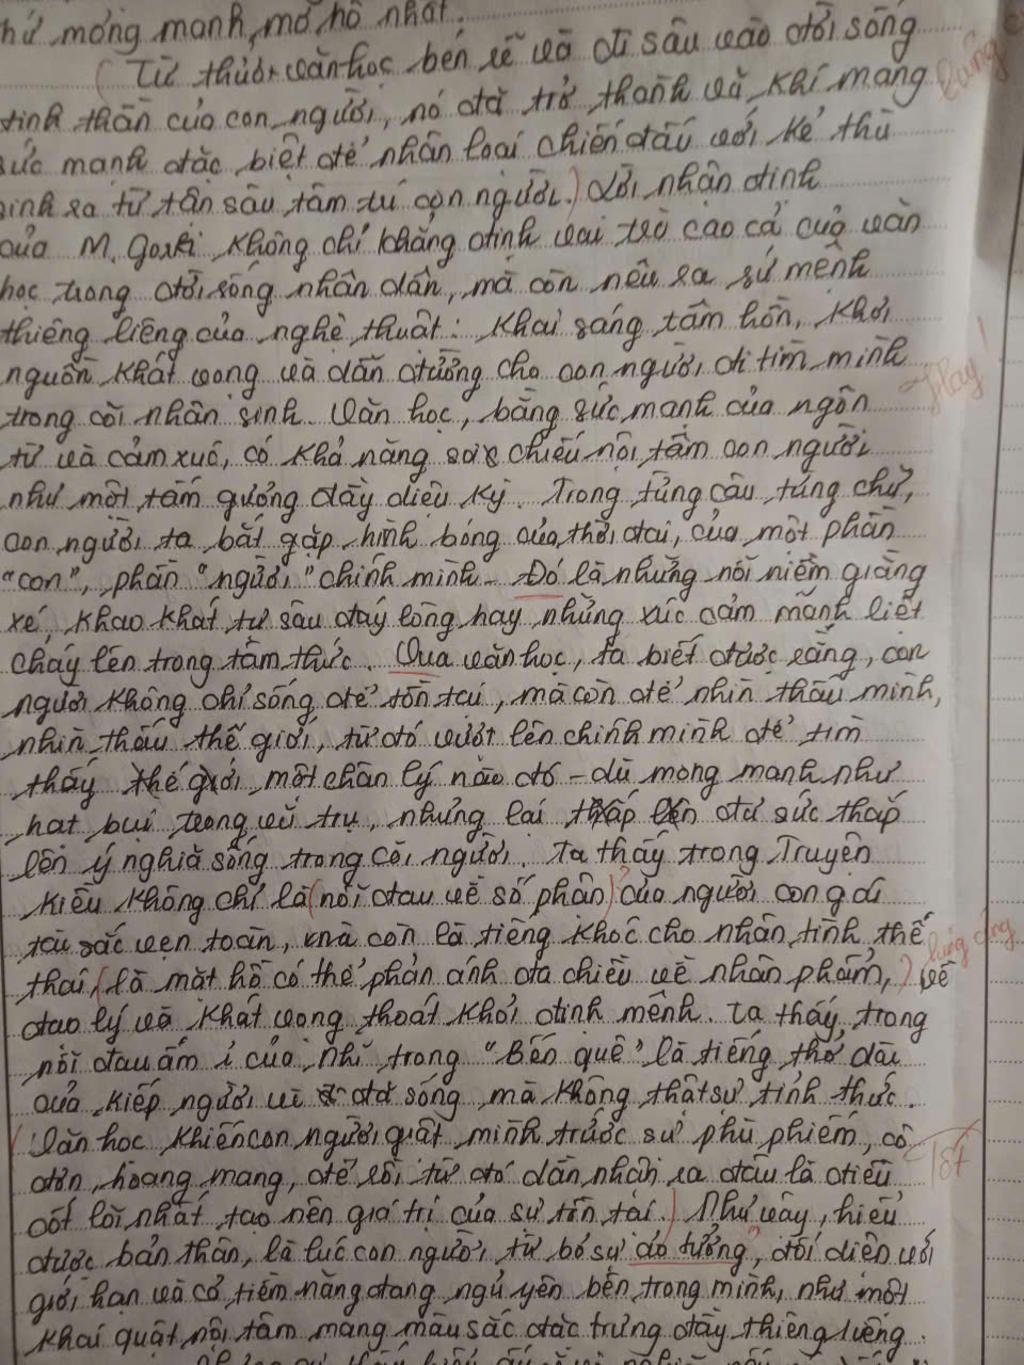 thứ mỏng manh, mơ hồ nhất.
(Từ thuở văn học bén rễ và đi sâu vào đời sống
tinh thần của con người, nó đã trở thành vũ khí mang
sức mạnh đặc biệt để nhân loại chiến đấu với kẻ thù
sinh ra từ tận sâu tâm tư con người.) Lời nhận định
của M. Gorki không chỉ khẳng định vai trò cao cả của văn
học trong đời sống nhân dân, mà còn nêu ra sứ mệnh
thiêng liêng của nghệ thuật: khai sáng tâm hồn, khơi
nguồn khát vọng và dẫn đường cho con người đi tìm mình
trong cõi nhân sinh. Văn học, bằng sức mạnh của ngôn
Hay!
từ và cảm xúc, có khả năng soi chiếu nội tâm con người
như một tấm gương đầy diệu kỳ. Trong từng câu từng chữ,
con người ta bắt gặp hình bóng của thời đại, của một phần
"con", phần "người" chính mình. Đó là những nỗi niềm giằng
xé, khao khát từ sâu đáy lòng hay những xúc cảm mãnh liệt
cháy lên trong tâm thức. Qua văn học, ta biết được rằng, con
người không chỉ sống để tồn tại, mà còn để nhìn thấu mình,
nhìn thấu thế giới, từ đó vượt lên chính mình để tìm
thấy thế giới một chân lý nào đó - dù mong manh như
hạt bụi trong vũ trụ, nhưng lại thắp lên đủ sức thắp
lên ý nghĩa sống trong cõi người. Ta thấy trong Truyện
Kiều không chỉ là (nỗi đau về số phận) của người con gái
tài sắc vẹn toàn, mà còn là tiếng khóc cho nhân tình thế
thái, (là mặt hồ có thể phản ánh đa chiều về nhân phẩm,) về
đạo lý và khát vọng thoát khỏi định mệnh. Ta thấy trong
nỗi đau âm ỉ của Nhĩ trong "Bến quê" là tiếng thở dài
của kiếp người vì đã sống mà không thật sự tỉnh thức.
(Văn học khiến con người giật mình trước sự phù phiếm, cô
Tốt
đơn, hoang mang, để rồi từ đó dần nhận ra đâu là điều
cốt lõi nhất tạo nên giá trị của sự tồn tại.) Như vậy, hiểu
được bản thân, là lúc con người từ bỏ sự "ảo tưởng", đối diện với
giới hạn và cả tiềm năng đang ngủ yên bên trong mình, như một
khai quật nội tâm mang màu sắc đặc trưng đầy thiêng liêng.